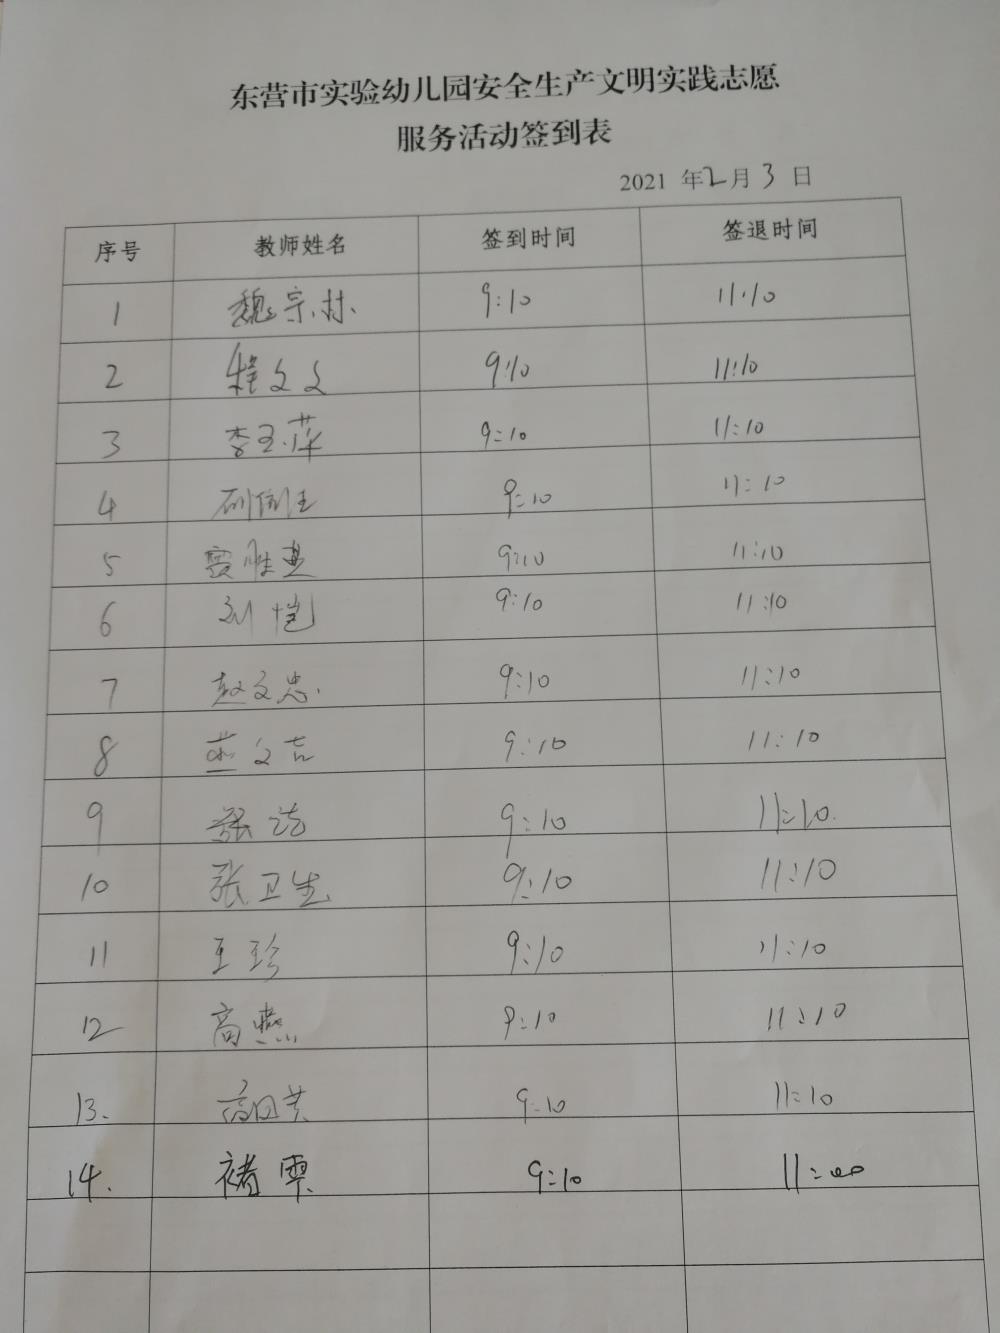 东营市实验幼儿园安全生产文明实践志愿
服务活动签到表
2021 年2月3日
序号 教师姓名 签到时间 签退时间
1 魏宗林 9:10 11:10
2 程文文 9:10 11:10
3 李玉萍 9:10 11:10
4 9:10 11:10
5 9:10 11:10
6 刘恺 9:10 11:10
7 赵文忠 9:10 11:10
8 燕文吉 9:10 11:10
9 张 9:10 11:10
10 张卫生 9:10 11:10
11 王珍 9:10 11:10
12 高燕 9:10 11:10
13. 高 9:10 11:10
14. 褚雯 9:10 11:00